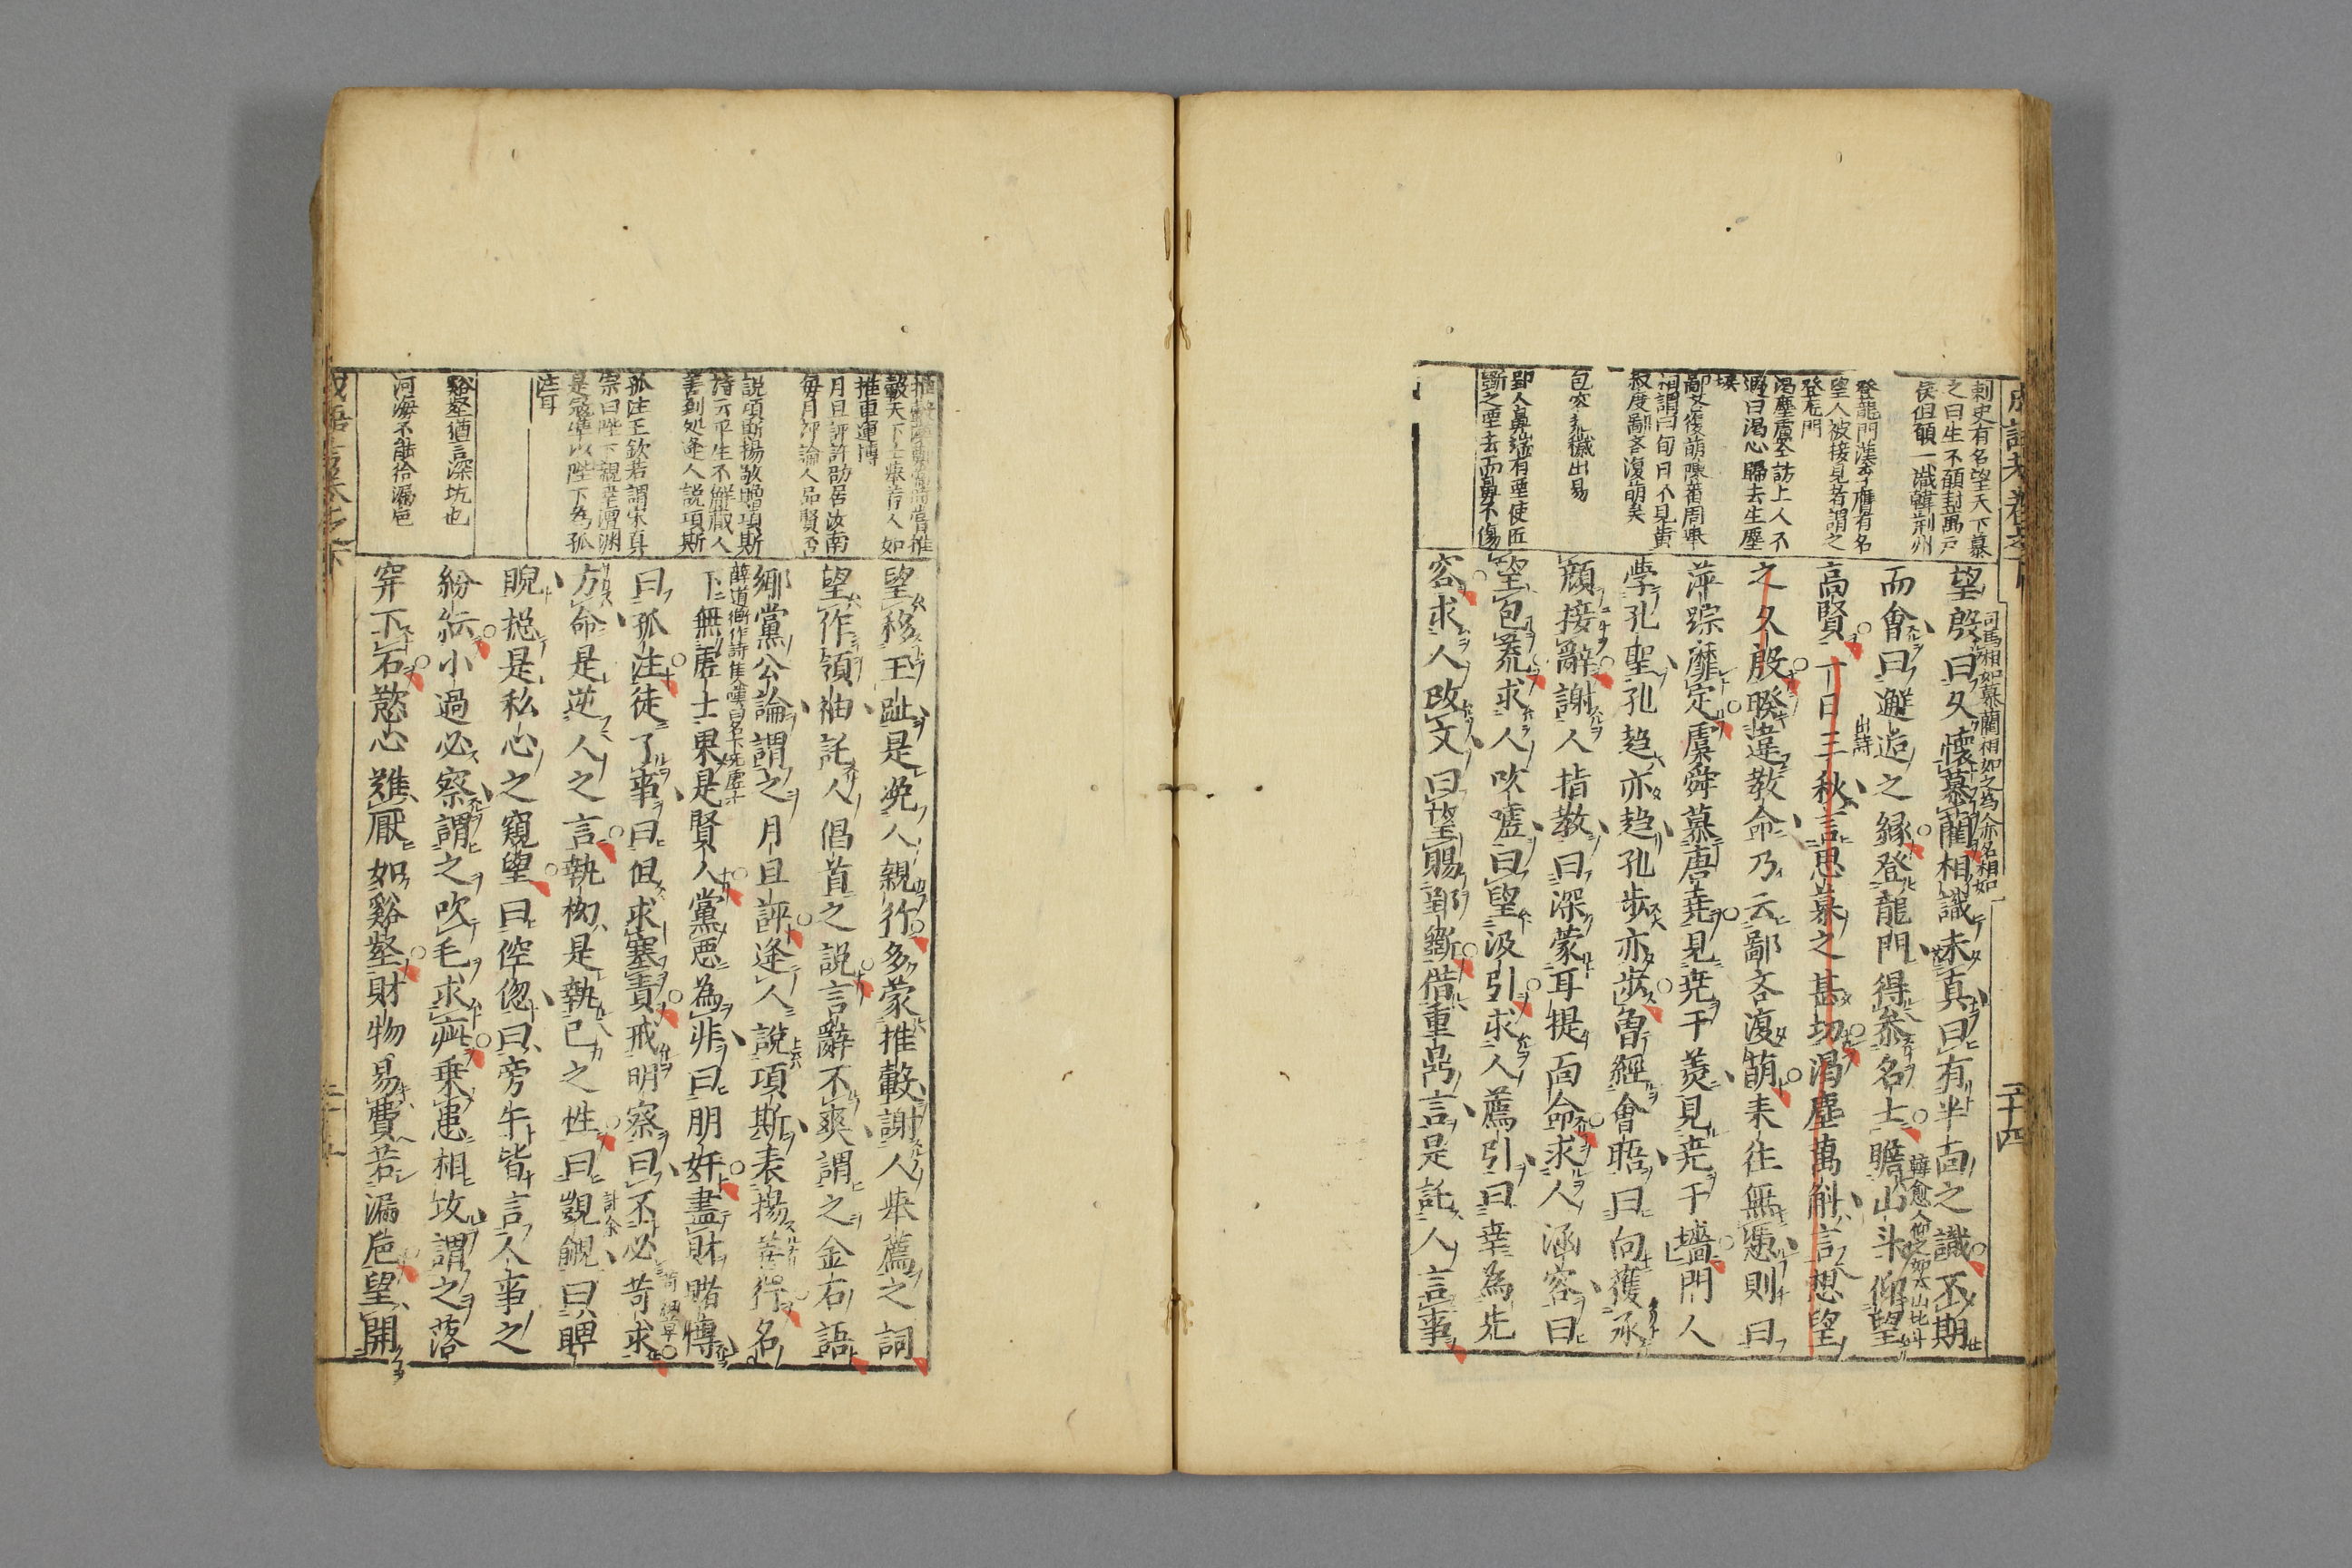 刺史有名望天下慕
之曰生不願封萬戸
侯但願一識韓荊州
登龍門漢李膺有名
望人被接見者謂之
登龍門
渇塵盧仝訪上人不
遇曰渇心歸去生塵
埃
鄙吝復萌陳蕃周舉
相謂曰旬日不見黄
叔度鄙吝復萌矣
包荒 荒穢出易
郢人鼻端有堊使匠
斲之堊去而鼻不傷
望殷曰久懷慕藺相識未真曰有半面之識不期
司馬相如慕藺相如之為人亦名相如
而會曰邂逅之縁登龍門得叅名士瞻山斗仰望
韓愈人仰之如太山北斗
高賢一日三秋言思慕之甚切渇塵萬斛言想望
出詩
之久殷暌違教命乃云鄙吝復萌来往無慿則曰
萍踪靡定虞舜慕唐堯見堯于羮見堯于墻門人
學孔聖孔趋亦趋孔步亦步曽經會晤曰向獲承
顔接辭謝人指教曰深蒙耳提面命求人涵容曰
望包荒求人吹嘘曰望汲引求人薦引曰幸為先
容求人改文曰望賜郢斲借重鼎言是託人言事
二十四
推轂天下士舉善人如
推車運博
月旦評許劭居汝南
毎月評論人品賢否
說項斯楊敬贈項斯
詩云平生不觧蔵人
善到処逢人説項斯
孤注王欽若謂宋真
宗曰陛下親幸澶渊
是冦凖以陛下為孤
注耳
谿壑猶言深坑也
河海不能拾漏巵
望移玉趾是浼人親行多蒙推轂謝人舉薦之詞
望作領袖託人倡首之説言辭不爽謂之金石語
郷黨公論謂之月旦評逢人說項斯表揚善行名
薛道衡作詩
下無虚士果是賢人黨惡為非曰朋奸盡財賭愽
曰孤注徒了事曰但求塞責戒明察曰不必苛求
方命是逆人之言執拗是執已之性曰覬覦曰睥
睨揔是私心之窺望曰倥偬曰旁午皆言人事之
紛紜小過必察謂之吹毛求疵乗患相攻謂之落
穽下石慾心難厭如谿壑財物易費若漏巵望開